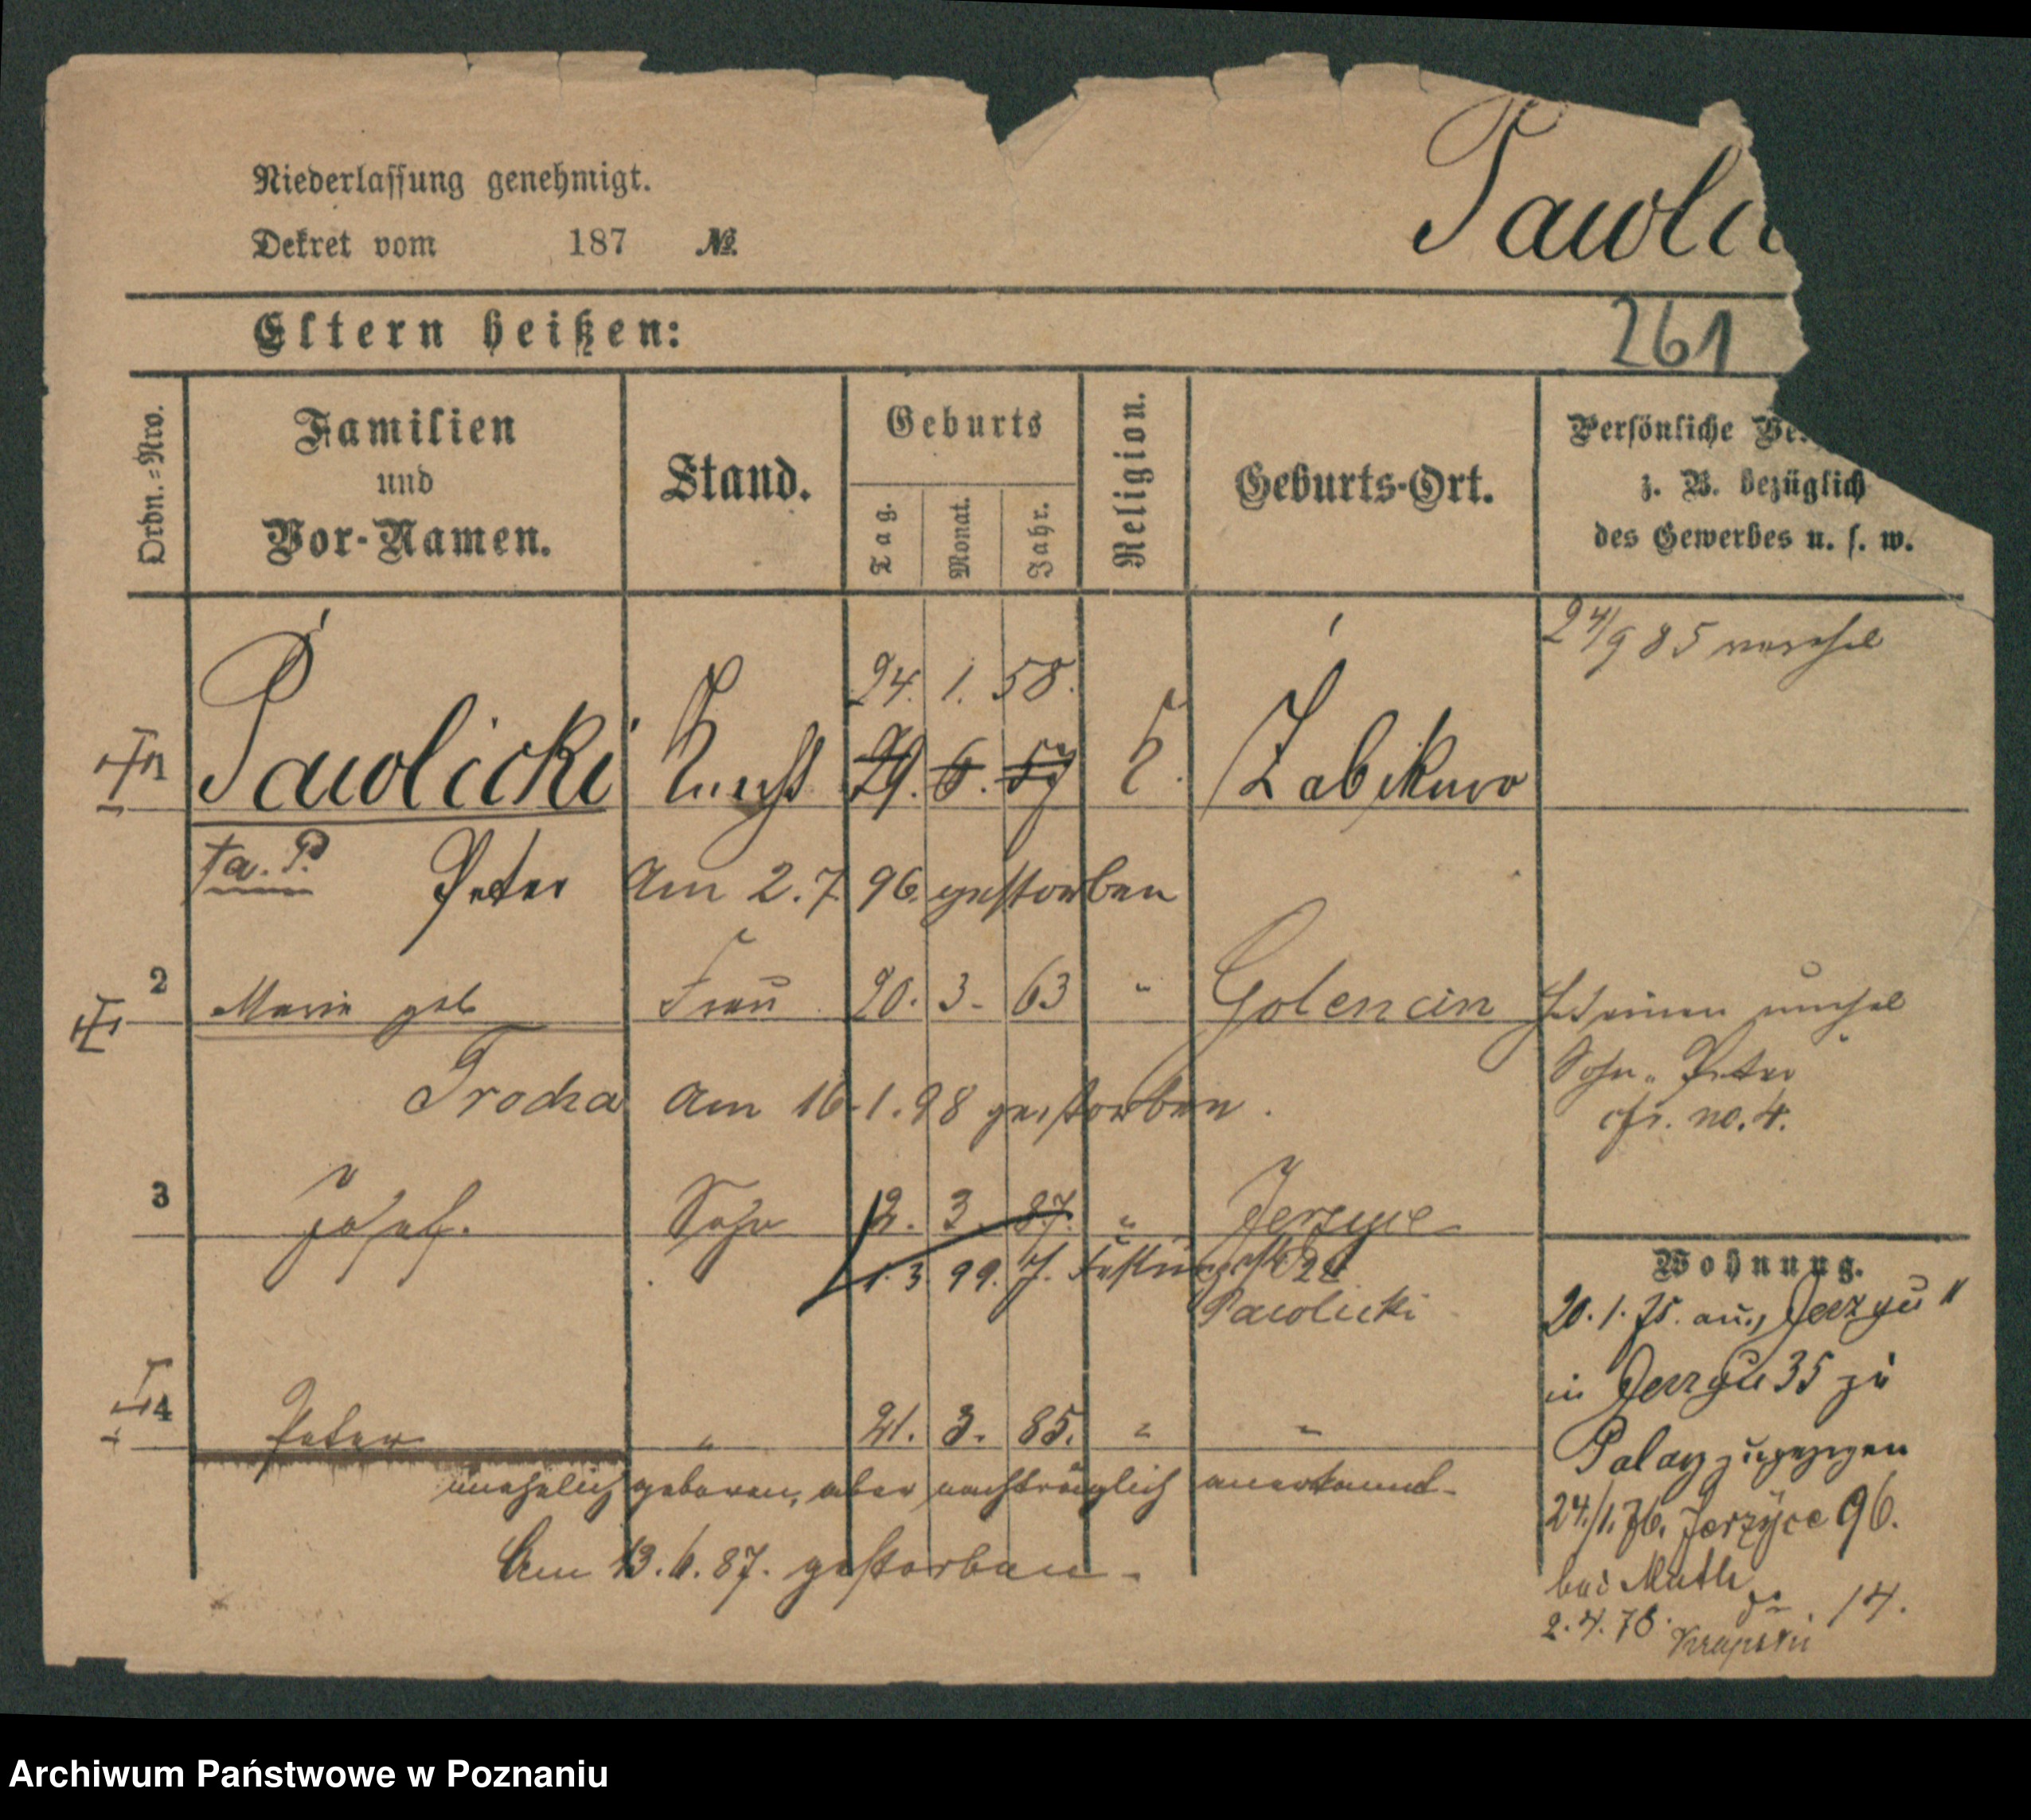 Niederlassung genehmigt.
Dekret vom 187 №
Pawli
Eltern heißen:
261
Ordn.=Nro.
Familien
und
Vor-Namen.
Stand.
Geburts
Tag.
Monat.
Jahr.
Religion.
Geburts-Ort.
Persönliche Be
z. B. bezüglich
des Gewerbes u. s. w.
24/9 85 verehel
24. 1. 58.
1 Pawlicki Knecht 29. 6. 57 k. Żabikowo
Peter Am 2. 7. 96. gestorben
2 Marie geb Frau 20. 3. 63 " Golencin Hat einen unehel
Sohn „Peter"
cfr. no. 4.
Trocha Am 16.1.98 gestorben.
3 Josef. Sohn 12. 3. 87. " Jerzyce
1. 3. 99. 24
Pawlicki
Wohnung.
20. 1. 75. aus „Jerzyce"
in Jerzyce 35 zu
Palacz zugezogen
24./1. 76. Jerzyce 96.
bei Muth
do 14.
2. 4. 78. Krapski
4 Peter " 21. 3. 85. " "
unehelich geboren, aber nachträglich anerkannt
Am 13. 6. 87. gestorben
Archiwum Państwowe w Poznaniu